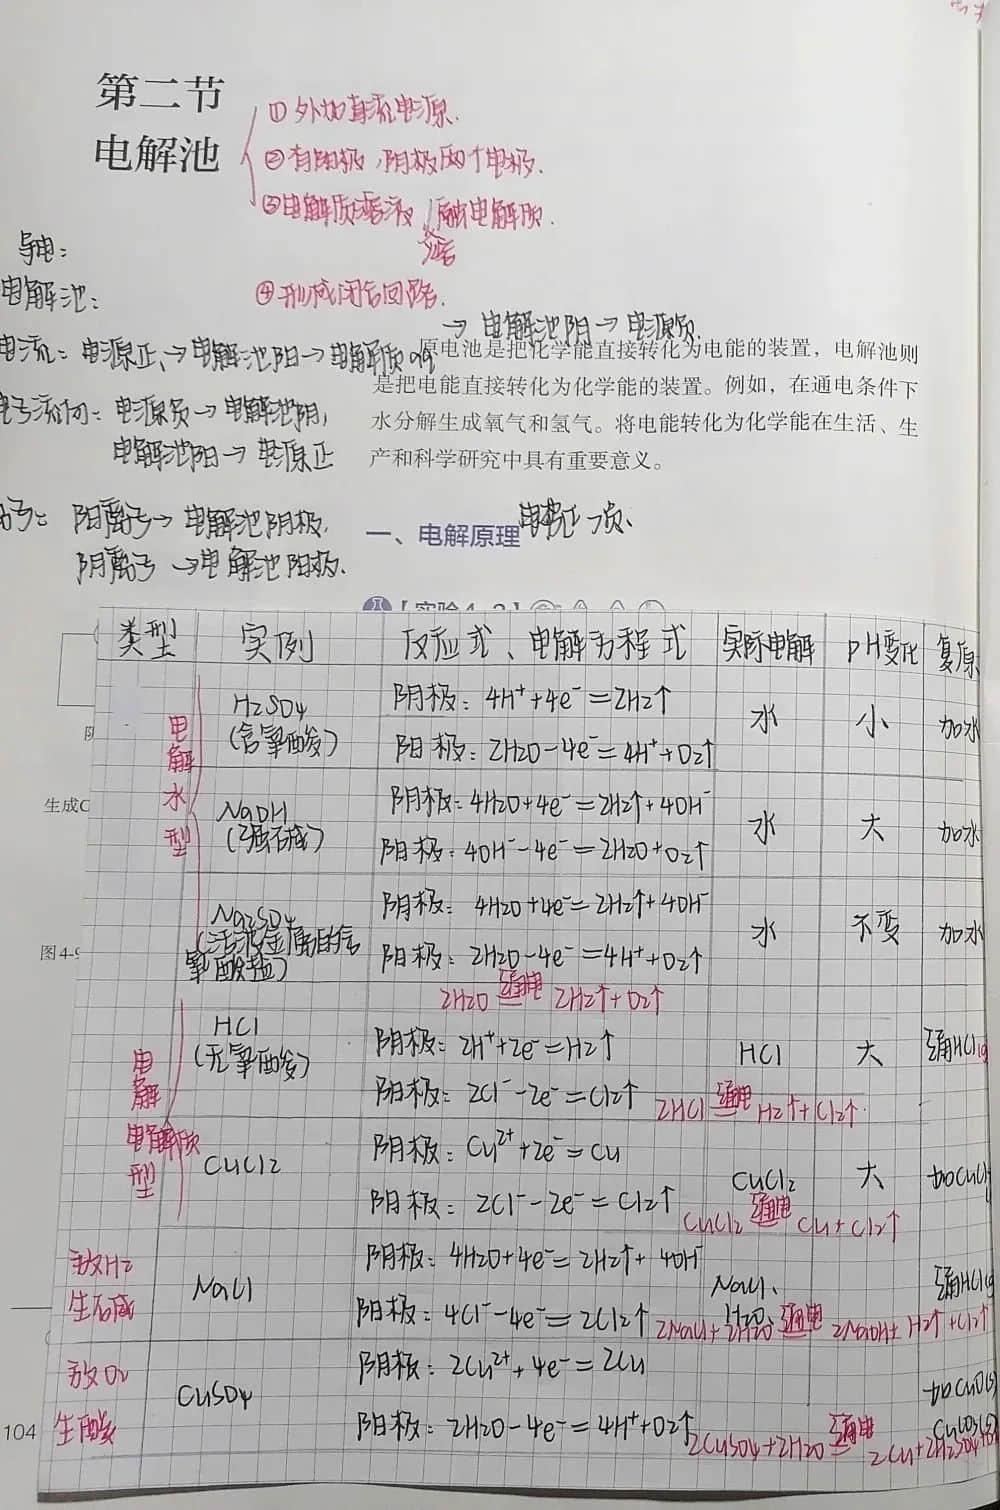 第二节
电解池
①外加直流电源.
②有阳极,阴极两个电极.
③电解质溶液/熔融电解质.
④形成闭合回路.
导电:
电解池:
→电解池阴→电源负
电流:电源正→电解池阳→电解质
原电池是把化学能直接转化为电能的装置,电解池则
是把电能直接转化为化学能的装置。例如,在通电条件下
水分解生成氧气和氢气。将电能转化为化学能在生活、生
产和科学研究中具有重要意义。
电子流向:电源负→电解池阴,
电解池阳→电源正
阳离子→电解池阴极.
阴离子→电解池阳极.
一、电解原理
类型 实例 反应式、电解方程式 实际电解 pH变化 复原
电解水型
H2SO4
(含氧酸)
阴极:4H⁺+4e⁻=2H2↑
阳极:2H2O-4e⁻=4H⁺+O2↑
水 小 加水
NaOH
(强碱)
阴极:4H2O+4e⁻=2H2↑+4OH⁻
阳极:4OH⁻-4e⁻=2H2O+O2↑
水 大 加水
Na2SO4
(活泼金属的含
氧酸盐)
阴极:4H2O+4e⁻=2H2↑+4OH⁻
阳极:2H2O-4e⁻=4H⁺+O2↑
2H2O 通电 2H2↑+O2↑
水 不变 加水
电解
电解质
型
HCl
(无氧酸)
阴极:2H⁺+2e⁻=H2↑
阳极:2Cl⁻-2e⁻=Cl2↑
HCl 大 通HCl(g)
2HCl 通电 H2↑+Cl2↑
CuCl2
阴极:Cu²⁺+2e⁻=Cu
阳极:2Cl⁻-2e⁻=Cl2↑
CuCl2 大 加CuCl
CuCl2 通电 Cu+Cl2↑
放H2
生碱
NaCl
阴极:4H2O+4e⁻=2H2↑+4OH⁻
阳极:4Cl⁻-4e⁻=2Cl2↑
NaCl、
H2O
通HCl(g
2NaCl+2H2O 通电 2NaOH+H2↑+Cl2↑
放O2
生酸
CuSO4
阴极:2Cu²⁺+4e⁻=2Cu
阳极:2H2O-4e⁻=4H⁺+O2↑
加CuO(s)
CuCO3(s)
2CuSO4+2H2O 通电 2Cu+2H2SO4+O
生成C
图4-9
104